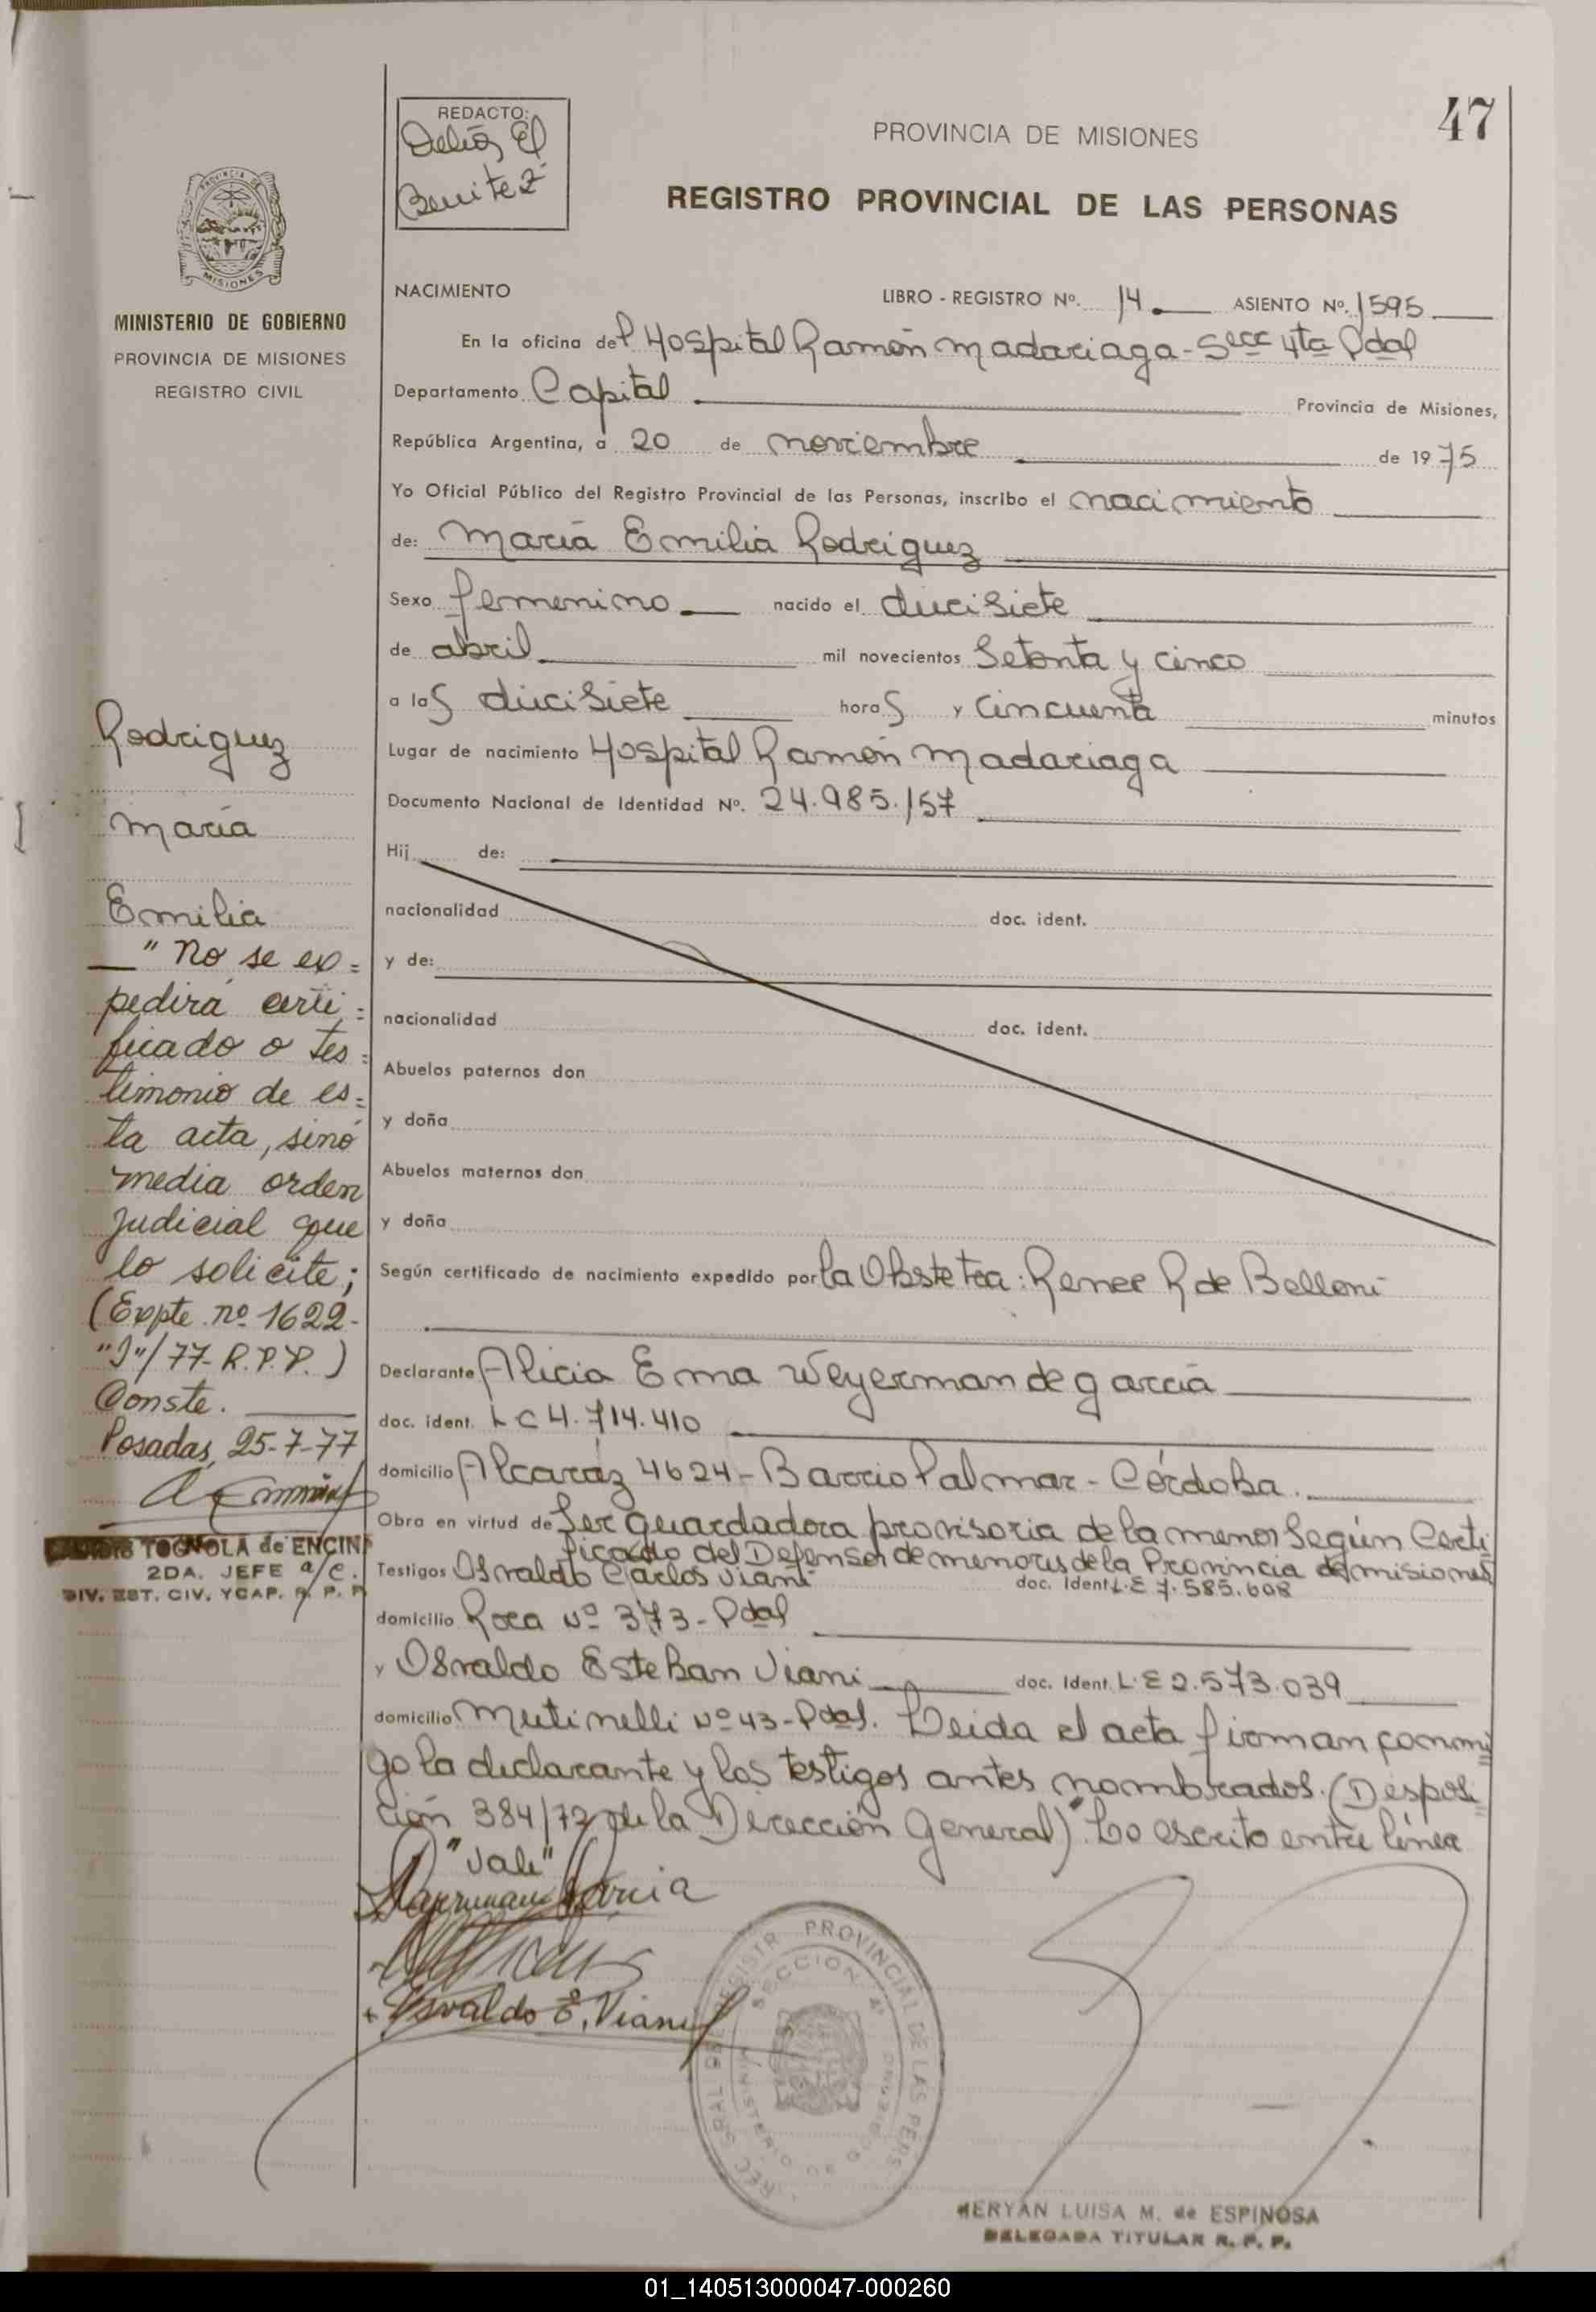 47
REDACTO:
Delia El
Benitez
PROVINCIA DE MISIONES
REGISTRO PROVINCIAL DE LAS PERSONAS
PROVINCIA DE
MISIONES
MINISTERIO DE GOBIERNO
PROVINCIA DE MISIONES
REGISTRO CIVIL
NACIMIENTO LIBRO - REGISTRO Nº. 14 ASIENTO Nº. 1595
En la oficina del Hospital Ramón Madariaga - Secc 4ta Pdal
Departamento Capital Provincia de Misiones,
República Argentina, a 20 de noviembre de 1975
Yo Oficial Público del Registro Provincial de las Personas, inscribo el nacimiento
de: María Emilia Rodriguez
Sexo femenino nacido el diecisiete
de abril mil novecientos Setenta y cinco
a las diecisiete horas y cincuenta minutos
Lugar de nacimiento Hospital Ramón Madariaga
Documento Nacional de Identidad Nº. 24.985.157
Hij de:
nacionalidad doc. ident.
y de:
nacionalidad doc. ident.
Abuelos paternos don
y doña
Abuelos maternos don
y doña
Según certificado de nacimiento expedido por la Obstetra: Renee R de Belloni
Declarante Alicia Ema Weyerman de garcía
doc. ident. LC 4.714.410
domicilio Alcaráz 4624 - Barrio Palmar - Córdoba.
Obra en virtud de Ser guardadora provisoria de la menor Según Certi
ficado del Defensor de menores de la Provincia de misiones
Testigos Osvaldo Carlos Viani doc. Ident L.E 7.585.608
domicilio Roca Nº 373 - Pdal
y Osvaldo Esteban Viani doc. Ident. L.E 2.573.039
domicilio Mutinelli Nº 43 - Pdas. Leida el acta firman conmi
go la declarante y los testigos antes nombrados. (Desposi
ción 384/72 de la Dirección General). Lo escrito entre línea
"Vale"
Garcia
Osvaldo E. Viani
Rodriguez
María
Emilia
"No se ex=
pedirá certi=
ficado o tes=
timonio de es=
ta acta, sinó
media orden
judicial que
lo solicite;
(Expte nº 1622-
"J"/77- R.P.P.)
Conste.
Posadas, 25-7-77
TOGNOLA de ENCIN
2DA. JEFE a/c.
DIV. EST. CIV. Y CAP. R. P. P
PROVINCIAL DE LAS PERS
SECCION 4ª
MINISTERIO DE GOBIERNO
MERYAN LUISA M. de ESPINOSA
DELEGADA TITULAR R. P. P.
01_140513000047-000260